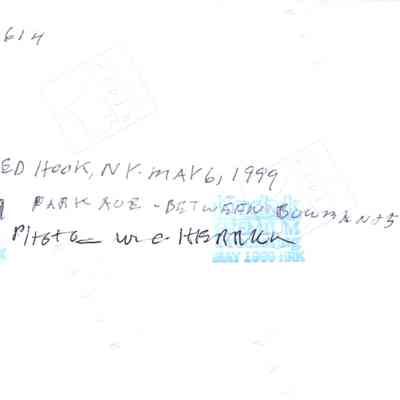 614
ED HOOK, NY. MAY 6, 1999
PARK AVE - BETWEEN BOWMAN + 5
PHOTO W. C. HERRICK
MAY 1999 HRK